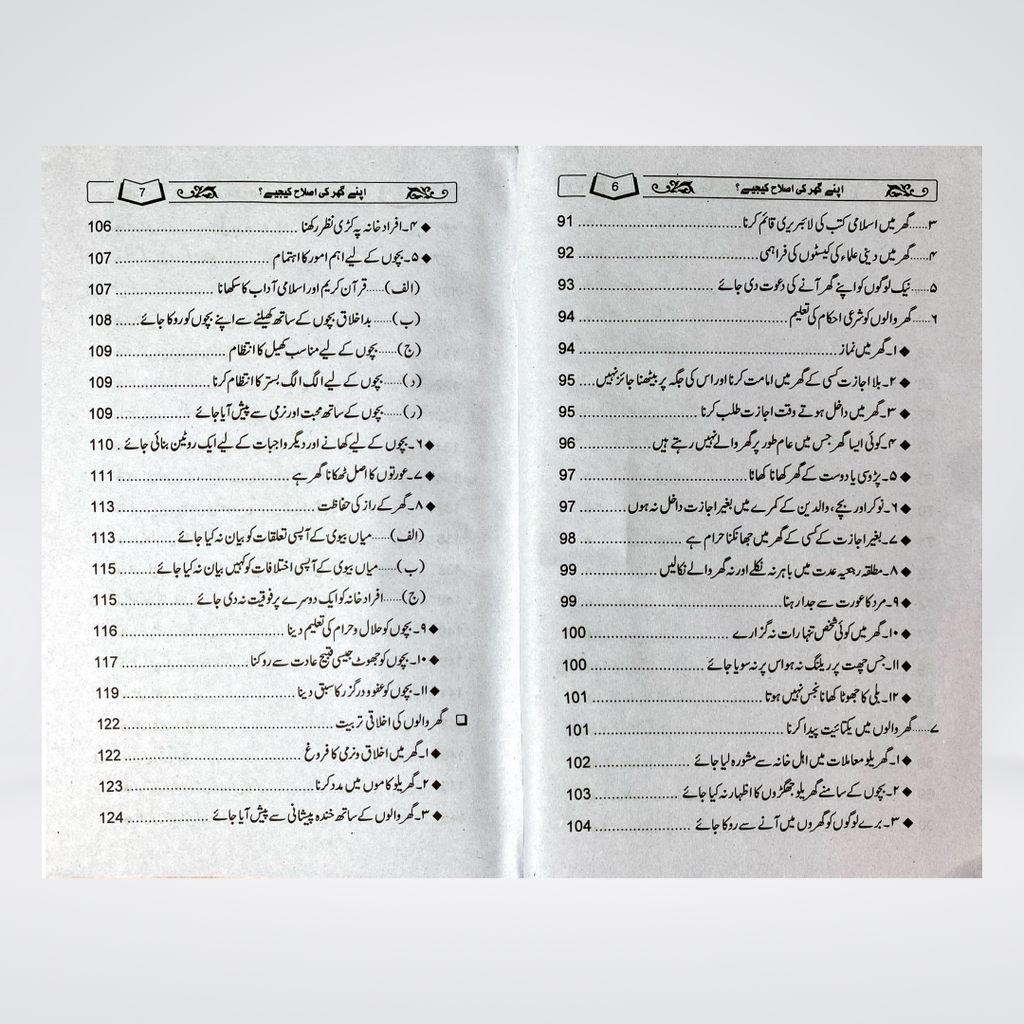 اپنے گھر کی اصلاح کیجیے؟ 6
۳......گھر میں اسلامی کتب کی لائبریری قائم کرنا 91
۴......گھر میں دینی علماء کی کیسٹوں کی فراہمی 92
۵......نیک لوگوں کو اپنے گھر آنے کی دعوت دی جائے 93
۶......گھر والوں کو شرعی احکام کی تعلیم 94
◆ ۱۔گھر میں نماز 94
◆ ۲۔بلا اجازت کسی کے گھر میں امامت کرنا اور اس کی جگہ پر بیٹھنا جائز نہیں 95
◆ ۳۔گھر میں داخل ہوتے وقت اجازت طلب کرنا 95
◆ ۴۔کوئی ایسا گھر جس میں عام طور پر گھر والے نہیں رہتے ہیں 96
◆ ۵۔پڑوسی یا دوست کے گھر کھانا کھانا 97
◆ ۶۔نوکر اور بچے، والدین کے کمرے میں بغیر اجازت داخل نہ ہوں 97
◆ ۷۔بغیر اجازت کے کسی کے گھر میں جھانکنا حرام ہے 98
◆ ۸۔مطلقہ رجعیہ عدت میں باہر نہ نکلے اور نہ گھر والے نکالیں 99
◆ ۹۔مرد کا عورت سے جدا رہنا 99
◆ ۱۰۔گھر میں کوئی شخص تنہا رات نہ گزارے 100
◆ ۱۱۔جس چھت پر ریلنگ نہ ہو اس پر نہ سویا جائے 100
◆ ۱۲۔بلی کا جھوٹا کھانا نجس نہیں ہوتا 101
۷......گھر والوں میں یکتائیت پیدا کرنا 101
◆ ۱۔گھریلو معاملات میں اہل خانہ سے مشورہ لیا جائے 102
◆ ۲۔بچوں کے سامنے گھریلو جھگڑوں کا اظہار نہ کیا جائے 103
◆ ۳۔برے لوگوں کو گھروں میں آنے سے روکا جائے 104
اپنے گھر کی اصلاح کیجیے؟ 7
◆ ۴۔افراد خانہ پہ کڑی نظر رکھنا 106
◆ ۵۔بچوں کے لیے اہم امور کا اہتمام 107
(الف)......قرآن کریم اور اسلامی آداب کا سکھانا 107
(ب)......بداخلاق بچوں کے ساتھ کھیلنے سے اپنے بچوں کو روکا جائے 108
(ج)......بچوں کے لیے مناسب کھیل کا انتظام 109
(د)......بچوں کے لیے الگ الگ بستر کا انتظام کرنا 109
(ر)......بچوں کے ساتھ محبت اور نرمی سے پیش آیا جائے 109
◆ ۶۔بچوں کے لیے کھانے اور دیگر واجبات کے لیے ایک روٹین بنائی جائے 110
◆ ۷۔عورتوں کا اصل ٹھکانا گھر ہے 111
◆ ۸۔گھر کے راز کی حفاظت 113
(الف)......میاں بیوی کے آپسی تعلقات کو بیان نہ کیا جائے 113
(ب)......میاں بیوی کے آپسی اختلافات کو کہیں بیان نہ کیا جائے 115
(ج)......افراد خانہ کو ایک دوسرے پر فوقیت نہ دی جائے 115
◆ ۹۔بچوں کو حلال و حرام کی تعلیم دینا 116
◆ ۱۰۔بچوں کو جھوٹ جیسی قبیح عادت سے روکنا 117
◆ ۱۱۔بچوں کو عفو و درگزر کا سبق دینا 119
❑ گھر والوں کی اخلاقی تربیت 122
◆ ۱۔گھر میں اخلاق و نرمی کا فروغ 122
◆ ۲۔گھریلو کاموں میں مدد کرنا 123
◆ ۳۔گھر والوں کے ساتھ خندہ پیشانی سے پیش آیا جائے 124